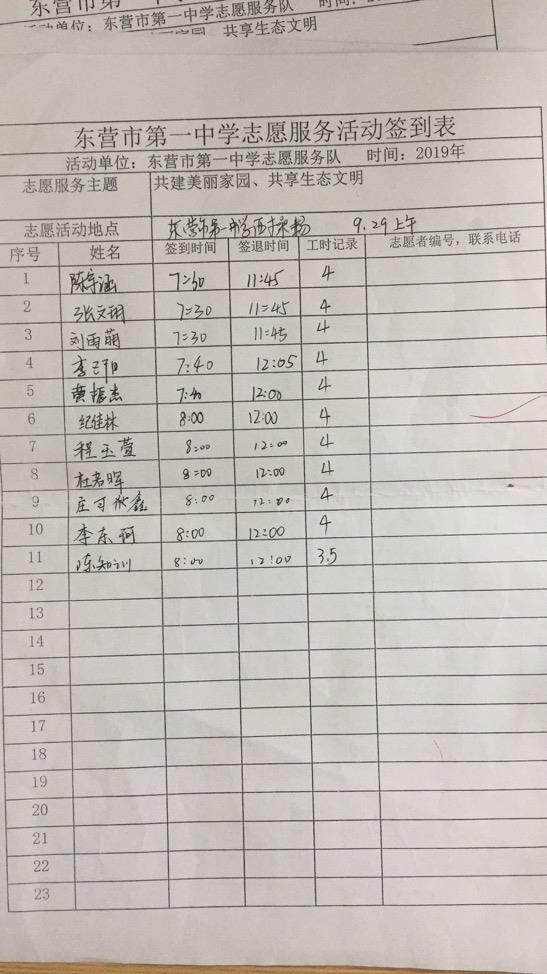 东营市第一
活动单位：东营市第一中学志愿服务队 时间：
家园、共享生态文明
东营市第一中学志愿服务活动签到表
活动单位：东营市第一中学志愿服务队 时间：2019年
志愿服务主题 共建美丽家园、共享生态文明
志愿活动地点 东营市第一中学西操场 9.29上午
序号 姓名 签到时间 签退时间 工时记录 志愿者编号，联系电话
1 陈宇涵 7:30 11:45 4
2 张文翊 7:30 11:45 4
3 刘雨萌 7:30 11:45 4
4 7:40 12:05 4
5 黄振杰 7:40 12:00 4
6 纪佳林 8:00 12:00 4
7 程玉萱 8:00 12:00 4
8 杜若晖 8:00 12:00 4
9 庄可 鑫 8:00 12:00 4
10 李东 8:00 12:00 4
11 陈知训 8:00 12:00 3.5
12
13
14
15
16
17
18
19
20
21
22
23